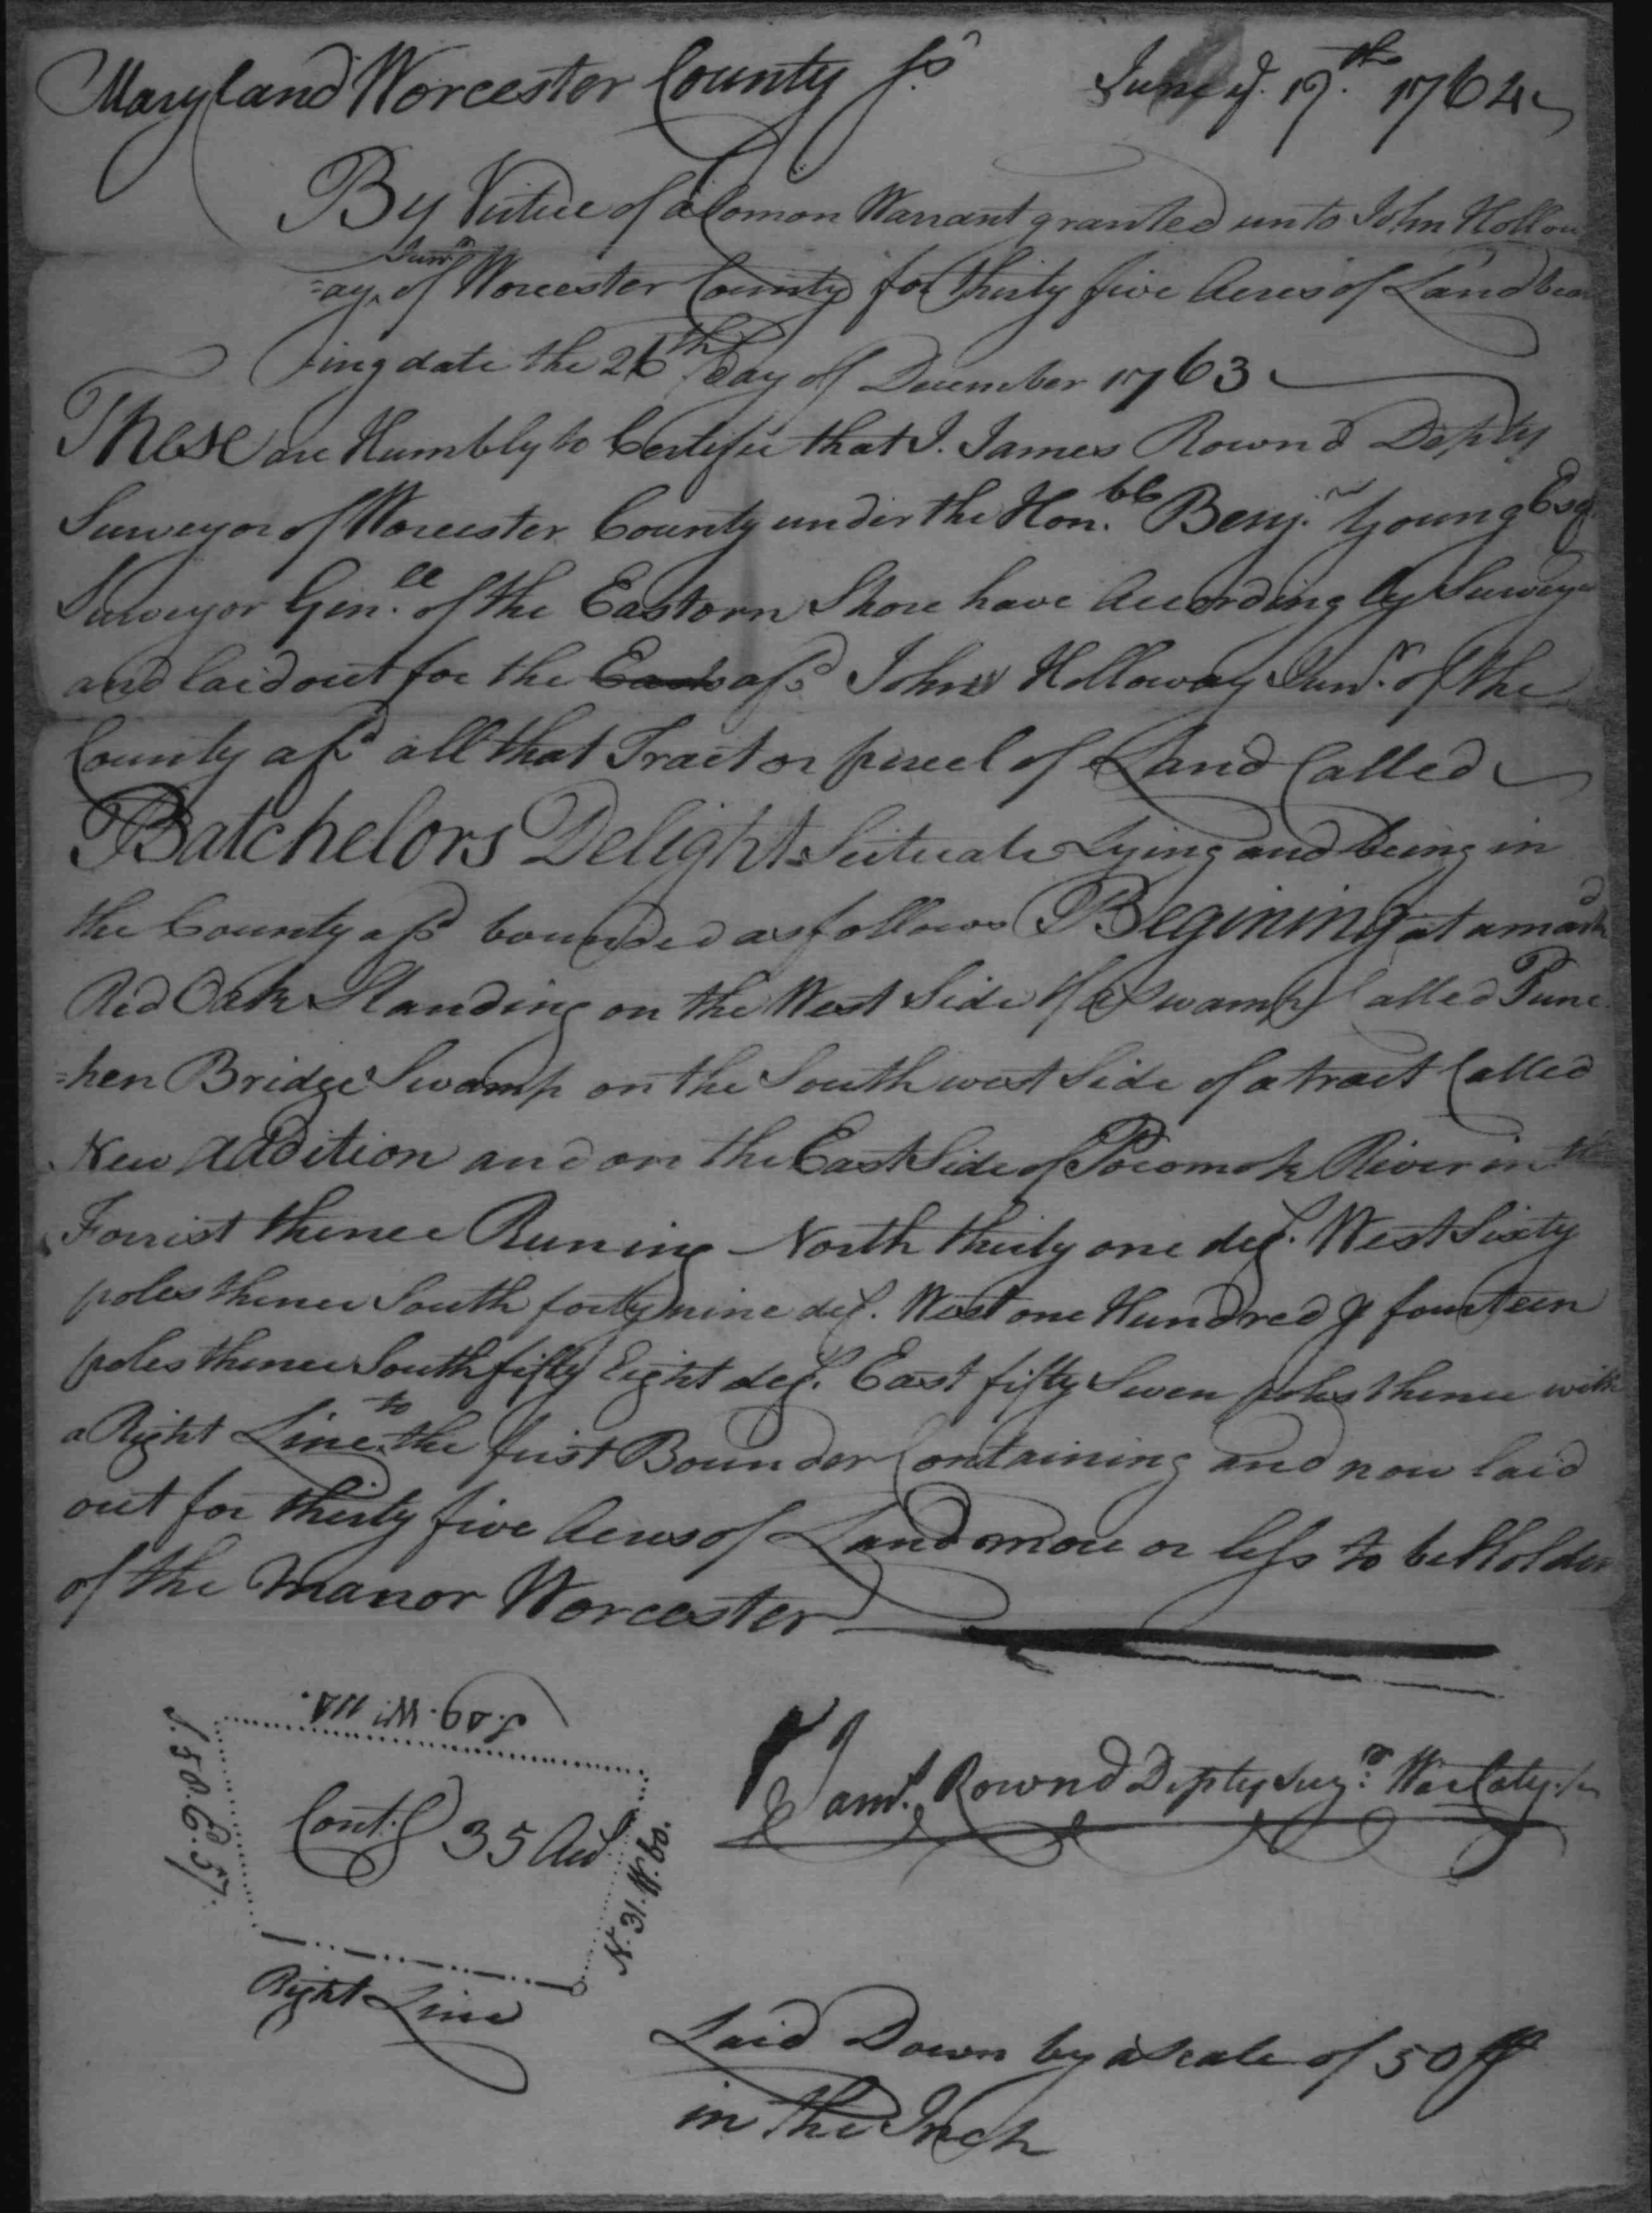 Maryland Worcester County ss June ye. 19th. 1764
By Virtue of a Comon Warrant granted unto John Hollow
=ay Junr of Worcester County for thirty five Acres of Land bea
ring date the 26th Day of December 1763
These are Humbly to Certifie that I. James Rownd Depty
Surveyor of Worcester County under the Hon.ble Benj.n Young Esqr
Surveyor Gen.ll of the Eastorn Shore have According ly Surveye
and laid out for the East afsd John Holloway Junr. of the
County afsd all that Tract or parcel of Land Called
Batchelors Delight Scituate Lying and being in
the County afsd bounded as follows Begining at a markd
Red Oak Standing on the West Side of a Swamp Called Punc
=hen Bridge Swamp on the South west Side of a tract Called
New Addition and on the East Side of Pocomok River in the
Forrist thence Runing North thirty one degs. West Sixty
poles thence South forty nine degs. West one Hundred & fourteen
poles thence South fifty Eight degs. East fifty Seven poles thence with
a Right Line to the first Bounder Containing and now laid
out for thirty five Acres of Land more or less to be Holden
of the Manor Worcester
S. 49. W. 114.
S. 58. E. 57.
Cont.g 35 Acrs
N. 31. W. 60.
Right Line
Jams. Rownd Depty Surr. Wor Coty.
Laid Down by a Scale of 50 ps
in the Inch